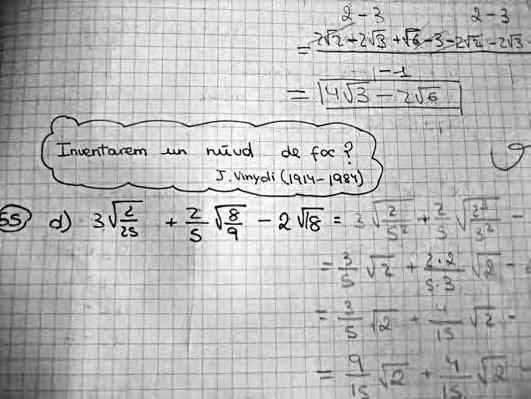 2 - 3 2 - 3
= 2√2 - 2√3 + √6 - 3 - 2√2 - 2√3
-1
= 4√3 - 2√6
Inventarem un núvol de foc?
J. Vinyoli (1914-1984)
55 d) 3√(2/25) + 2/5 √(8/9) - 2√18 = 3√(2/5²) + 2/5 √(2³/3²) -
= 3/5 √2 + 2·2/5·3 √2 -
= 3/5 √2 + 4/15 √2 -
= 9/15 √2 + 4/15 √2